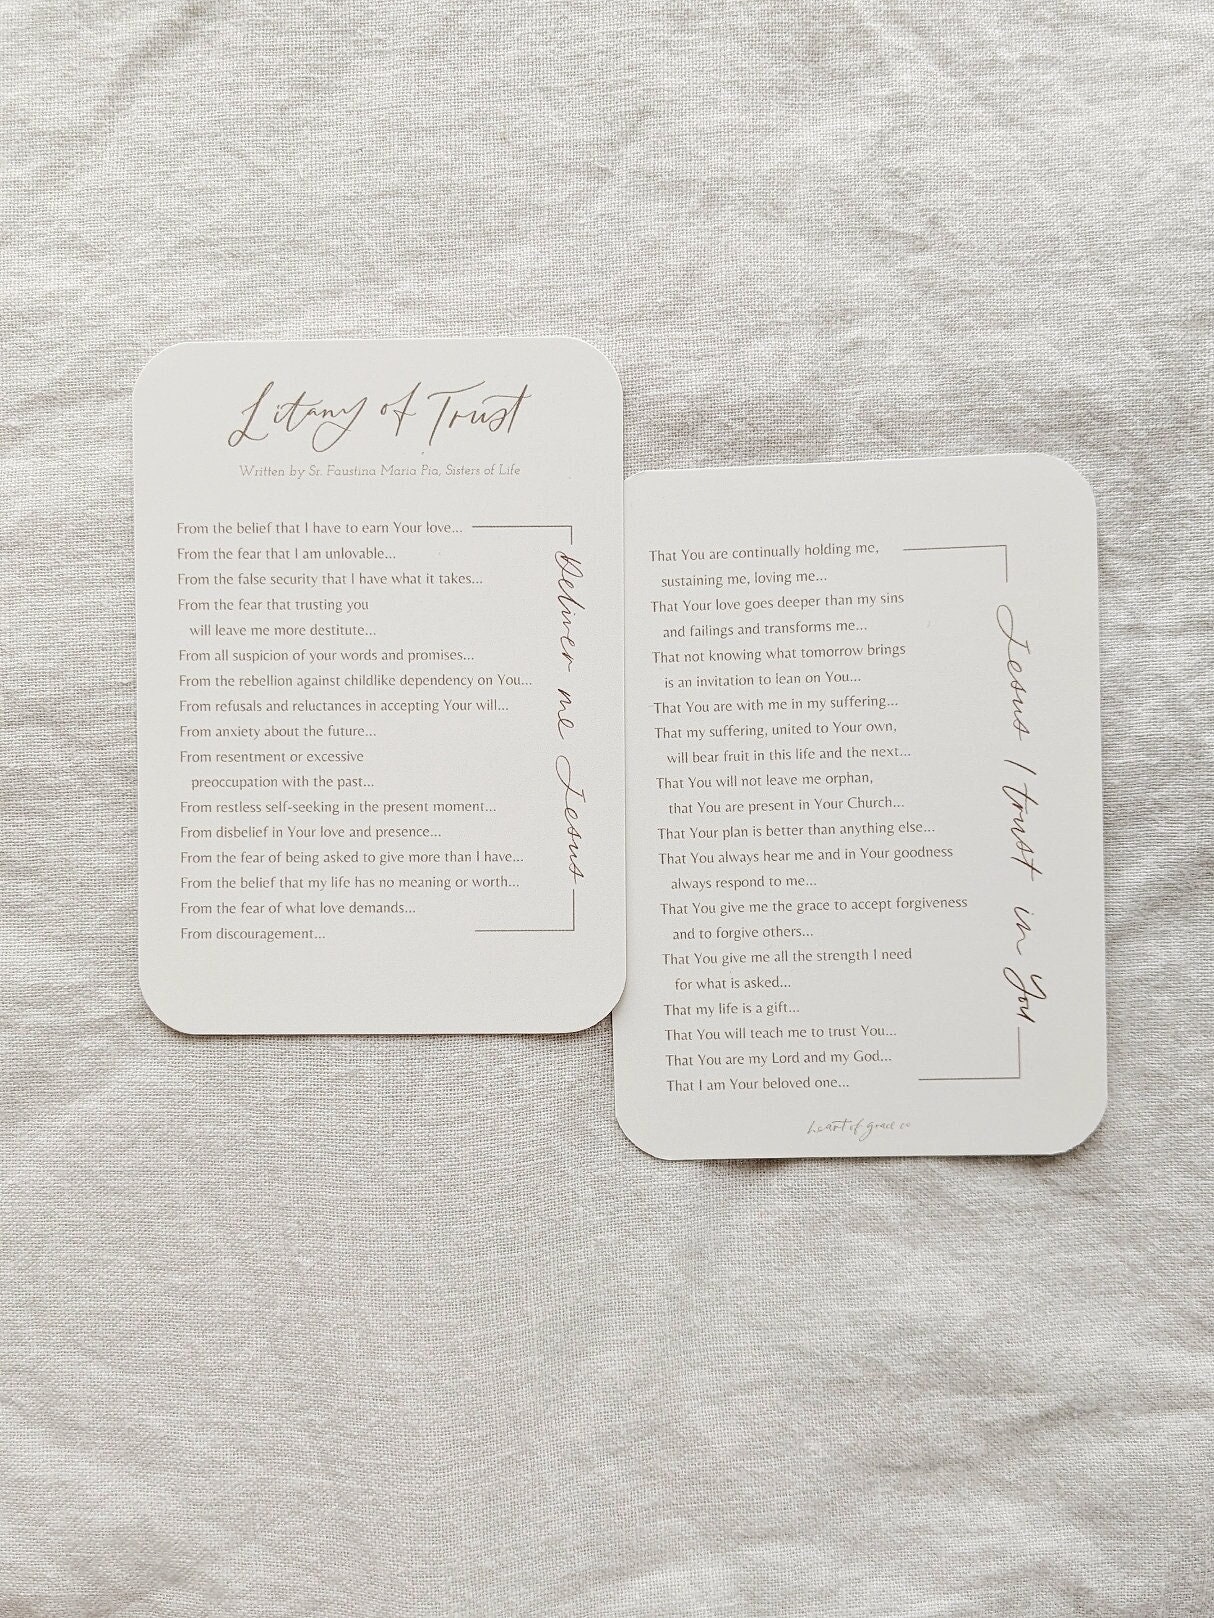 Litany of Trust
Written by Sr. Faustina Maria Pia, Sisters of Life
From the belief that I have to earn Your love...
From the fear that I am unlovable...
From the false security that I have what it takes...
From the fear that trusting you
will leave me more destitute...
From all suspicion of your words and promises...
From the rebellion against childlike dependency on You...
From refusals and reluctances in accepting Your will...
From anxiety about the future...
From resentment or excessive
preoccupation with the past...
From restless self-seeking in the present moment...
From disbelief in Your love and presence...
From the fear of being asked to give more than I have...
From the belief that my life has no meaning or worth...
From the fear of what love demands...
From discouragement...
Deliver me Jesus
That You are continually holding me,
sustaining me, loving me...
That Your love goes deeper than my sins
and failings and transforms me...
That not knowing what tomorrow brings
is an invitation to lean on You...
That You are with me in my suffering...
That my suffering, united to Your own,
will bear fruit in this life and the next...
That You will not leave me orphan,
that You are present in Your Church...
That Your plan is better than anything else...
That You always hear me and in Your goodness
always respond to me...
That You give me the grace to accept forgiveness
and to forgive others...
That You give me all the strength I need
for what is asked...
That my life is a gift...
That You will teach me to trust You...
That You are my Lord and my God...
That I am Your beloved one...
Jesus I trust in You
heart of grace co